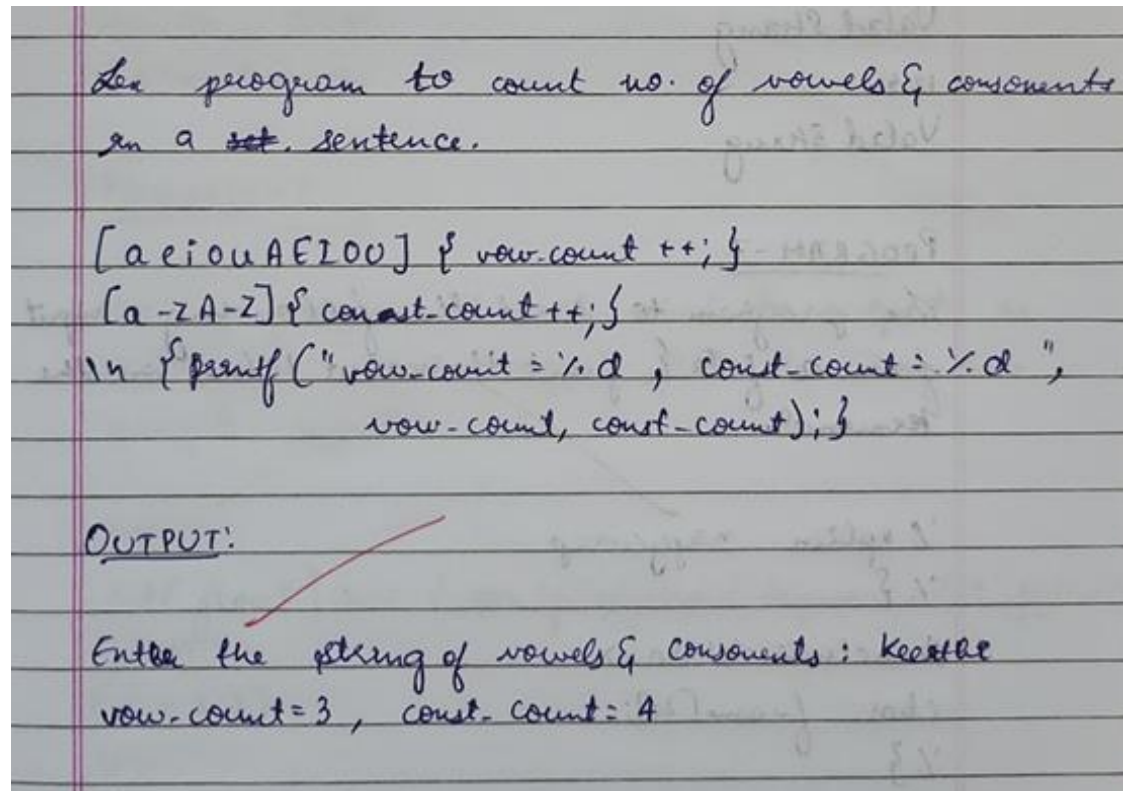 Lex program to count no. of vowels & consonents
in a set. sentence.
[aeiouAEIOU] { vow-count ++; }
[a-zA-Z] { const-count ++; }
\n {printf ("vow-count = %d , const-count = %d ",
vow-count, const-count); }
OUTPUT:
Enter the string of vowels & consonents : Keerthi
vow-count = 3 , const-count = 4